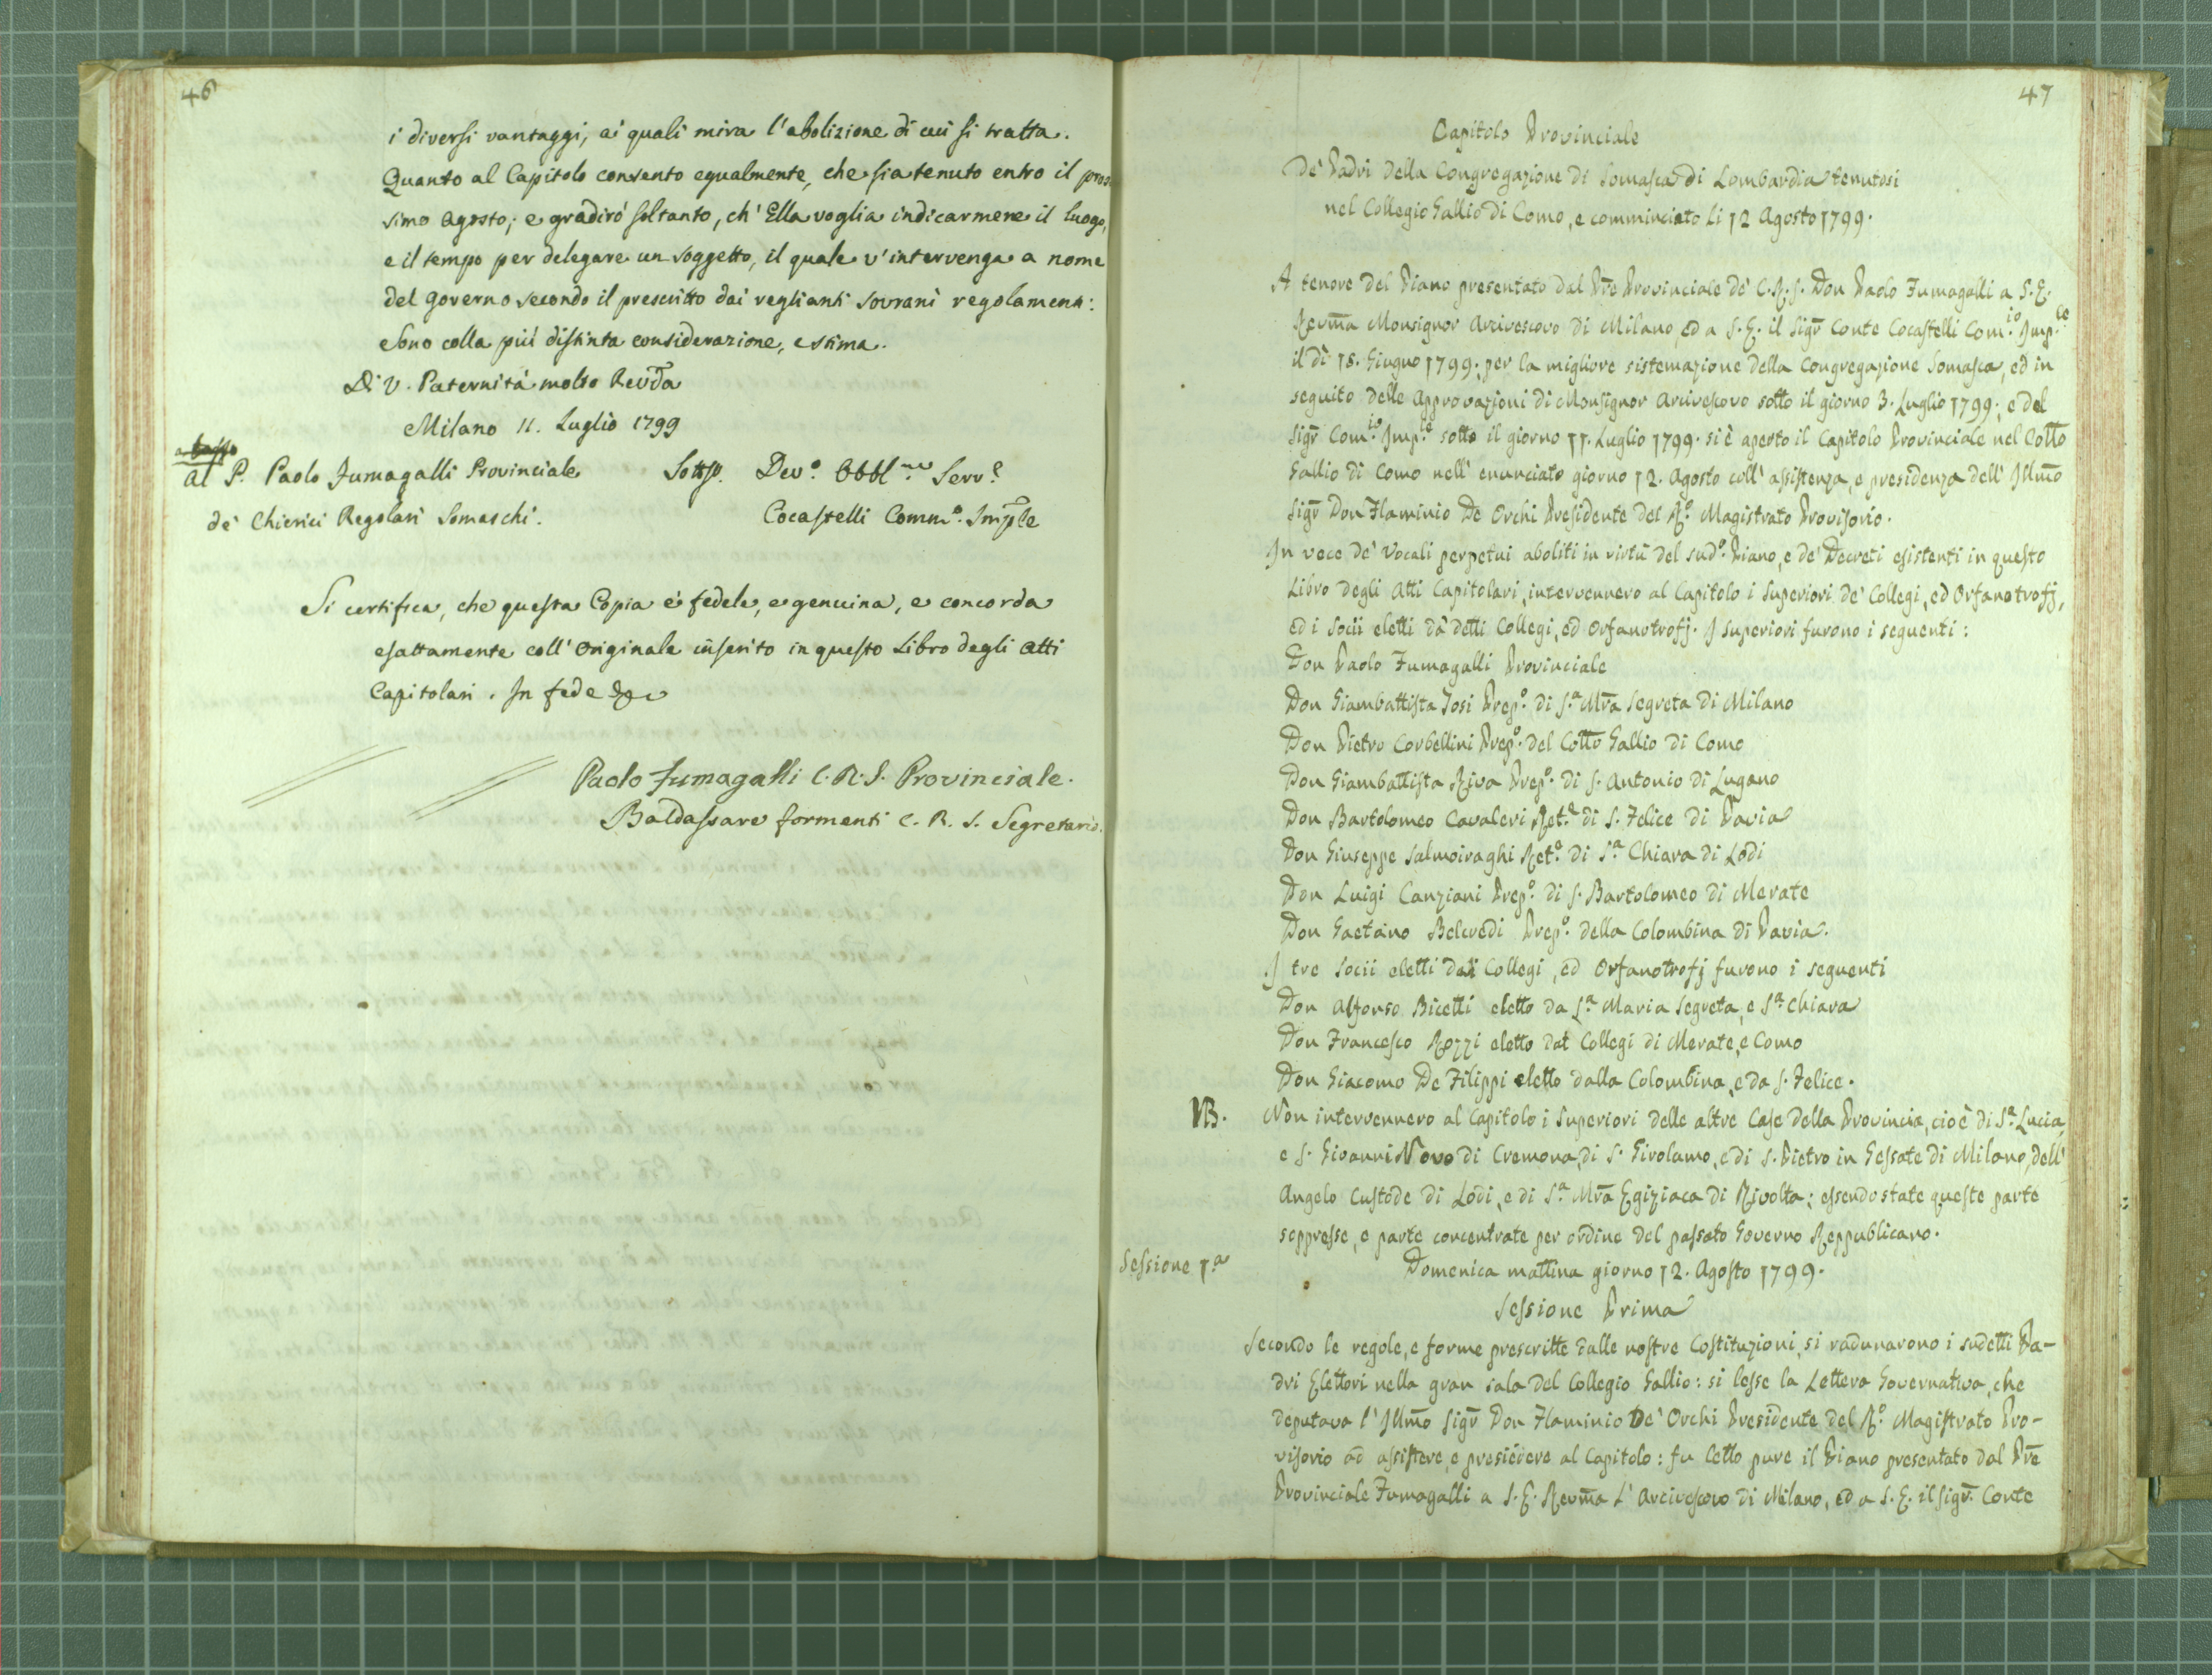 46
i diversi vantaggi, ai quali mira l'abolizione di cui si tratta.
Quanto al Capitolo consento egualmente, che sia tenuto entro il pros
simo Agosto; e gradirò soltanto, ch'Ella voglia indicarmene il luogo,
e il tempo per delegare un soggetto, il quale v'intervenga a nome
del Governo secondo il prescritto dai veglianti Sovrani regolamenti:
e sono colla più distinta considerazione, e stima.
Di V. Paternità molto Revda
Milano 11. Luglio 1799
a basso
Al P. Paolo Fumagalli Provinciale Sottsẛ. Devo. Obblmo Serve
de' Chierici Regolari Somaschi. Cocastelli Commo. Imple
Si certifica, che questa Copia è fedele, e genuina, e concorda
esattamente coll'Originale inserito in questo Libro degli Atti
Capitolari. In fede &c
Paolo Fumagalli C.R.S. Provinciale.
Baldassare formenti C. R. S. Segretario.
47
Capitolo Provinciale
De' Padri della Congregazione di Somasca di Lombardia tenutosi
nel Collegio Gallio di Como, e comminciato li 12 Agosto 1799.
A tenore del Piano presentato dal Pre Provinciale de' C.R.S. Don Paolo Fumagalli a S.E.
Revma Monsignor Arcivescovo di Milano, ed a S.E. il Sigr Conte Cocastelli Com.io Imp.le
il dì 18. Giugno 1799. per la migliore sistemazione della Congregazione Somasca, ed in
seguito delle Approvazioni di Monsignor Arcivescovo sotto il giorno 3. Luglio 1799; e del
Sigr Com.io Imp.le sotto il giorno 11. Luglio 1799. si è aperto il Capitolo Provinciale nel Collo
Gallio di Como nell'enunciato giorno 12. Agosto coll'assistenza, e presidenza dell'Illmo
Sigr Don Flaminio De Orchi Presidente del R.o Magistrato Provisorio.
In vece de' Vocali perpetui aboliti in virtù del sud.o Piano, e de' Decreti esistenti in questo
Libro degli Atti Capitolari, intervennero al Capitolo i Superiori de' Collegi, ed Orfanotrofj,
ed i Socii eletti da' detti Collegi, ed Orfanotrofj. I Superiori furono i seguenti:
Don Paolo Fumagalli Provinciale
Don Giambattista Josi Prep.o di S.a Mra Segreta di Milano
Don Pietro Corbellini Prep.o del Collo Gallio di Como
Don Giambattista Riva Prep.o di S. Antonio di Lugano
Don Bartolomeo Cavaleri Ret.e di S. Felice di Pavia
Don Giuseppe Salmoiraghi Ret.e di S.a Chiara di Lodi
Don Luigi Canziani Prep.o di S. Bartolomeo di Merate
Don Gaetano Belcredi Prep.o della Colombina di Pavia.
I tre Socii eletti dai Collegi, ed Orfanotrofj furono i seguenti
Don Alfonso Bicetti eletto da S.a Maria Segreta, e S.a Chiara
Don Francesco Rozzi eletto dai Collegi di Merate, e Como
Don Giacomo De Filippi eletto dalla Colombina, e da S. Felice.
NB. Non intervennero al Capitolo i Superiori delle altre Case della Provincia, cioè di S.a Lucia,
e S. Gioanni Novo di Cremona, di S. Girolamo, e di S. Pietro in Gessate di Milano, dell'
Angelo Custode di Lodi, e di S.a Mra Egiziaca di Rivolta; essendo state queste parte
soppresse, e parte concentrate per ordine del passato Governo Reppublicano.
Sessione 1.a Domenica mattina giorno 12. Agosto 1799.
Sessione Prima
Secondo le regole, e forme prescritte dalle nostre Costituzioni, si radunarono i sudetti Pa-
dri Elettori nella gran sala del Collegio Gallio: si lesse la Lettera Governativa, che
deputava l'Illmo Sigr Don Flaminio De' Orchi Presidente del R.o Magistrato Pro-
visorio ad assistere, e presiedere al Capitolo: fu letto pure il Piano presentato dal Pre
Provinciale Fumagalli a S.E. Revma L'Arcivescovo di Milano, ed a S.E. il Sigr. Conte